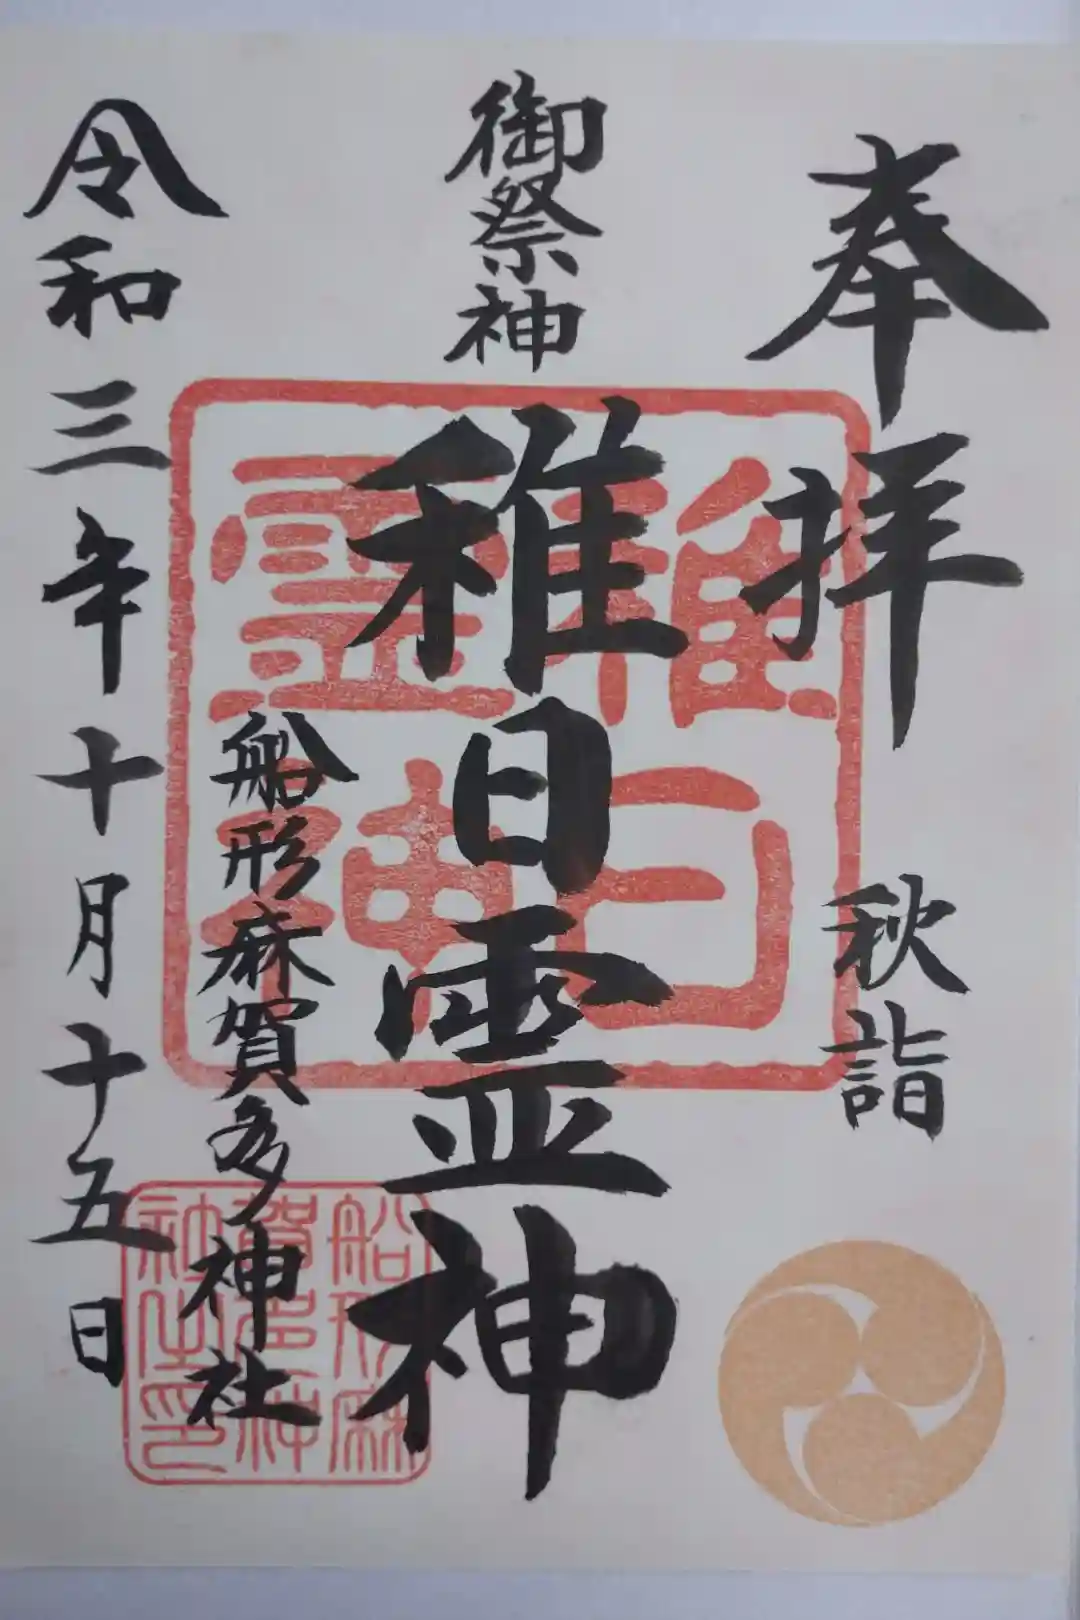 奉拝
秋詣
御祭神
稚日霊神
船形麻賀多神社
令和三年十月十五日
稚日
霊神
船形麻
賀多神
社之印